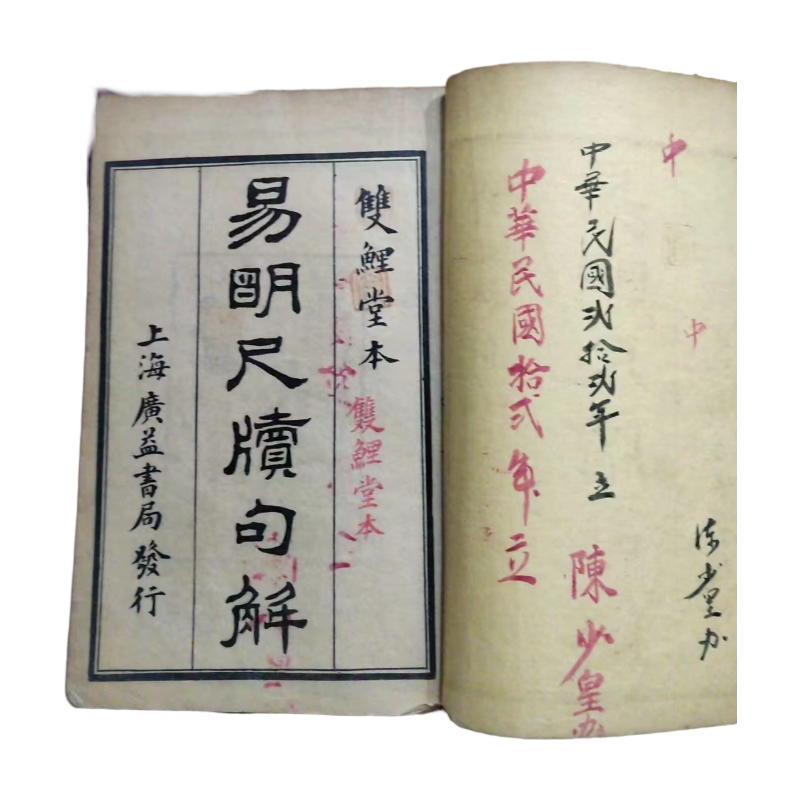 陳少皇办
中
中
中華民國弍拾弍年 立
陳少皇办
中華民國拾弍年立
雙鯉堂本
雙鯉堂本
易明尺牘句解
上海廣益書局發行